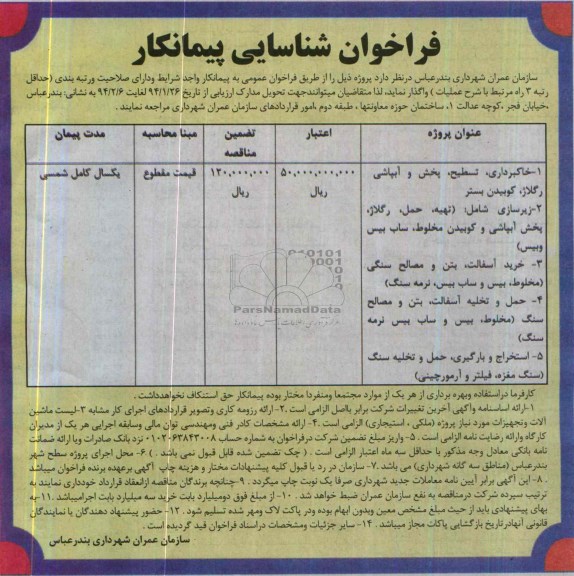 فراخوان شناسایی پیمانکار
سازمان عمران شهرداری بندرعباس درنظر دارد پروژه ذیل را از طریق فراخوان عمومی به پیمانکار واجد شرایط ودارای صلاحیت ورتبه بندی (حداقل
رتبه ۳ راه مرتبط با شرح عملیات) واگذار نماید، لذا متقاضیان میتوانندجهت تحویل مدارک ارزیابی از تاریخ ۹۴/۱/۲۶ لغایت ۹۴/۲/۶ به نشانی: بندرعباس
،خیابان فجر ،کوچه عدالت ۱، ساختمان حوزه معاونتها ، طبقه دوم ،امور قراردادهای سازمان عمران شهرداری مراجعه نمایند .
عنوان پروژه اعتبار تضمین مناقصه مبنا محاسبه مدت پیمان
۱-خاکبرداری، تسطیح، پخش و آبپاشی ۵۰,۰۰۰,۰۰۰,۰۰۰ ۱۲۰,۰۰۰,۰۰۰ قیمت مقطوع یکسال کامل شمسی
رگلاژ، کوبیدن بستر ریال ریال
۲-زیرسازی شامل: (تهیه، حمل، رگلاژ،
پخش آبپاشی و کوبیدن مخلوط، ساب بیس
وبیس)
۳- خرید آسفالت، بتن و مصالح سنگی
(مخلوط، بیس و ساب بیس، نرمه سنگ)
۴- حمل و تخلیه آسفالت، بتن و مصالح
سنگ (مخلوط، بیس و ساب بیس نرمه
سنگ)
۵- استخراج و بارگیری، حمل و تخلیه سنگ
(سنگ مغزه، فیلتر و آرمورچینی)
ParsNamadData
کارفرما دراستفاده وبهره برداری از هر یک از موارد مجتمعا ومنفردا مختار بوده پیمانکار حق استنکاف نخواهدداشت .
۱-ارائه اساسنامه وآگهی آخرین تغییرات شرکت برابر بااصل الزامی است .۲-ارائه رزومه کاری وتصویر قراردادهای اجرای کار مشابه ۳-لیست ماشین
آلات وتجهیزات مورد نیاز پروژه (ملکی ، استیجاری) الزامی است .۴- ارائه مشخصات کادر فنی ومهندسی توان مالی وسابقه اجرایی هر یک از مدیران
کارگاه وارائه رضایت نامه الزامی است . ۵- واریز مبلغ تضمین شرکت درفراخوان به شماره حساب ۰۱۰۲۰۶۳۸۴۳۰۰۸ نزد بانک صادرات ویا ارائه ضمانت
نامه بانکی معادل وجه مذکور با حداقل سه ماه اعتبار الزامی است . ( چک تضمین شده قابل قبول نمی باشد . ) ۶- محل اجرای پروژه سطح شهر
بندرعباس (مناطق سه گانه شهرداری) می باشد .۷- سازمان در رد یا قبول کلیه پیشنهادات مختار و هزینه چاپ آگهی برعهده برنده فراخوان میباشد
. ۸- این آگهی برابر آیین نامه معاملات جدید شهرداری صرفا یک نوبت چاپ میگردد . ۹-چنانچه برندگان مناقصه ازانعقاد قرارداد خودداری نمایند به
ترتیب سپرده شرکت درمناقصه به نفع سازمان عمران ضبط خواهد شد . ۱۰- از مبلغ فوق دومیلیارد بابت خرید سه میلیارد بابت اجرامیباشد .۱۱-به
بهای پیشنهادی باید از حیث مبلغ مشخص معین وبدون ابهام بوده ودر پاکت لاک ومهر شده تسلیم شود .۱۲-حضور پیشنهاد دهندگان یا نمایندگان
قانونی آنهادرتاریخ بازگشایی پاکات مجاز میباشد . ۱۴- سایر جزئیات ومشخصات دراسناد فراخوان قید گردیده است .
سازمان عمران شهرداری بندرعباس